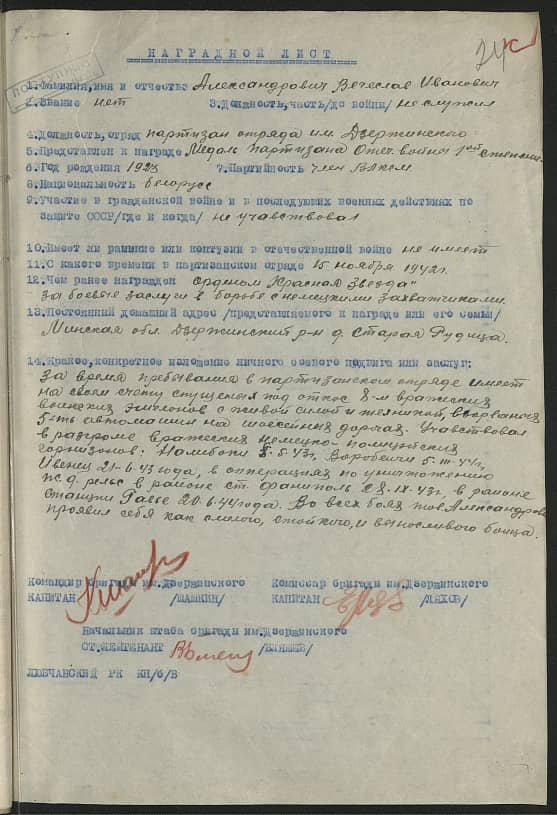 НАГРАДНОЙ ЛИСТ
1.Фамилия,имя и отчество Александрович Вечеслав Иванович
2.Звание нет 3.Должность,часть/до войны/ не служил
4.Должность,отряд партизан отряда им. Дзержинского
5.Представлен к награде Медаль Партизана Отеч. войны 1ой степени
6.Год рождения 1923 7.Партийность член ВЛКСМ
8.Национальность белорусс
9.Участие в гражданской войне и в последующих военных действиях по
защите СССР/где и когда/ не учавствовал
10.Имеет ли ранение или контузии в отечественной войне не имеет
11.С какого времени в партизанском отряде 15 ноября 1942г.
12.Чем ранее награжден орденом "Красная Звезда"
за боевые заслуги в борьбе с немецкими захватчиками.
13.Постоянный домашний адрес /представляемого к награде или его семьи/
Минская обл. Дзержинский р-н д. Старая Рудица.
14.Краткое,конкретное изложение личного боевого подвига или заслуг:
За время пребывания в партизанском отряде имеет
на своём счету спущеных под откос 8-м вражеских
воинских эшелонов с живой силой и техникой, взорваных
5-ть автомашин на шоссейных дорогах. Учавствовал
в разгроме вражеских немецко-полицейских
горнизонов: Налибоки 8.5.43г, Воробевичи 5.III-44г,
Ивенец 21-6.43 года, в опперациях по уничтожению
ж.д. рельс в районе ст. Фаниполь 8.IX-43г, в районе
станции 20.6.44 года. Во всех боях тов. Александров
проявил себя как смелого, стойкого, и выносливого бойца.
Командир бригады им.Дзержинского Комиссар бригады им.Дзержинского
КАПИТАН /ШАШКИН/ КАПИТАН /ЛЯХОВ/
Начальник штаба бригады им.Дзержинского
СТ.ЛЕЙТЕНАНТ
ЛЮБЧАНСКИЙ РК КП/б/Б